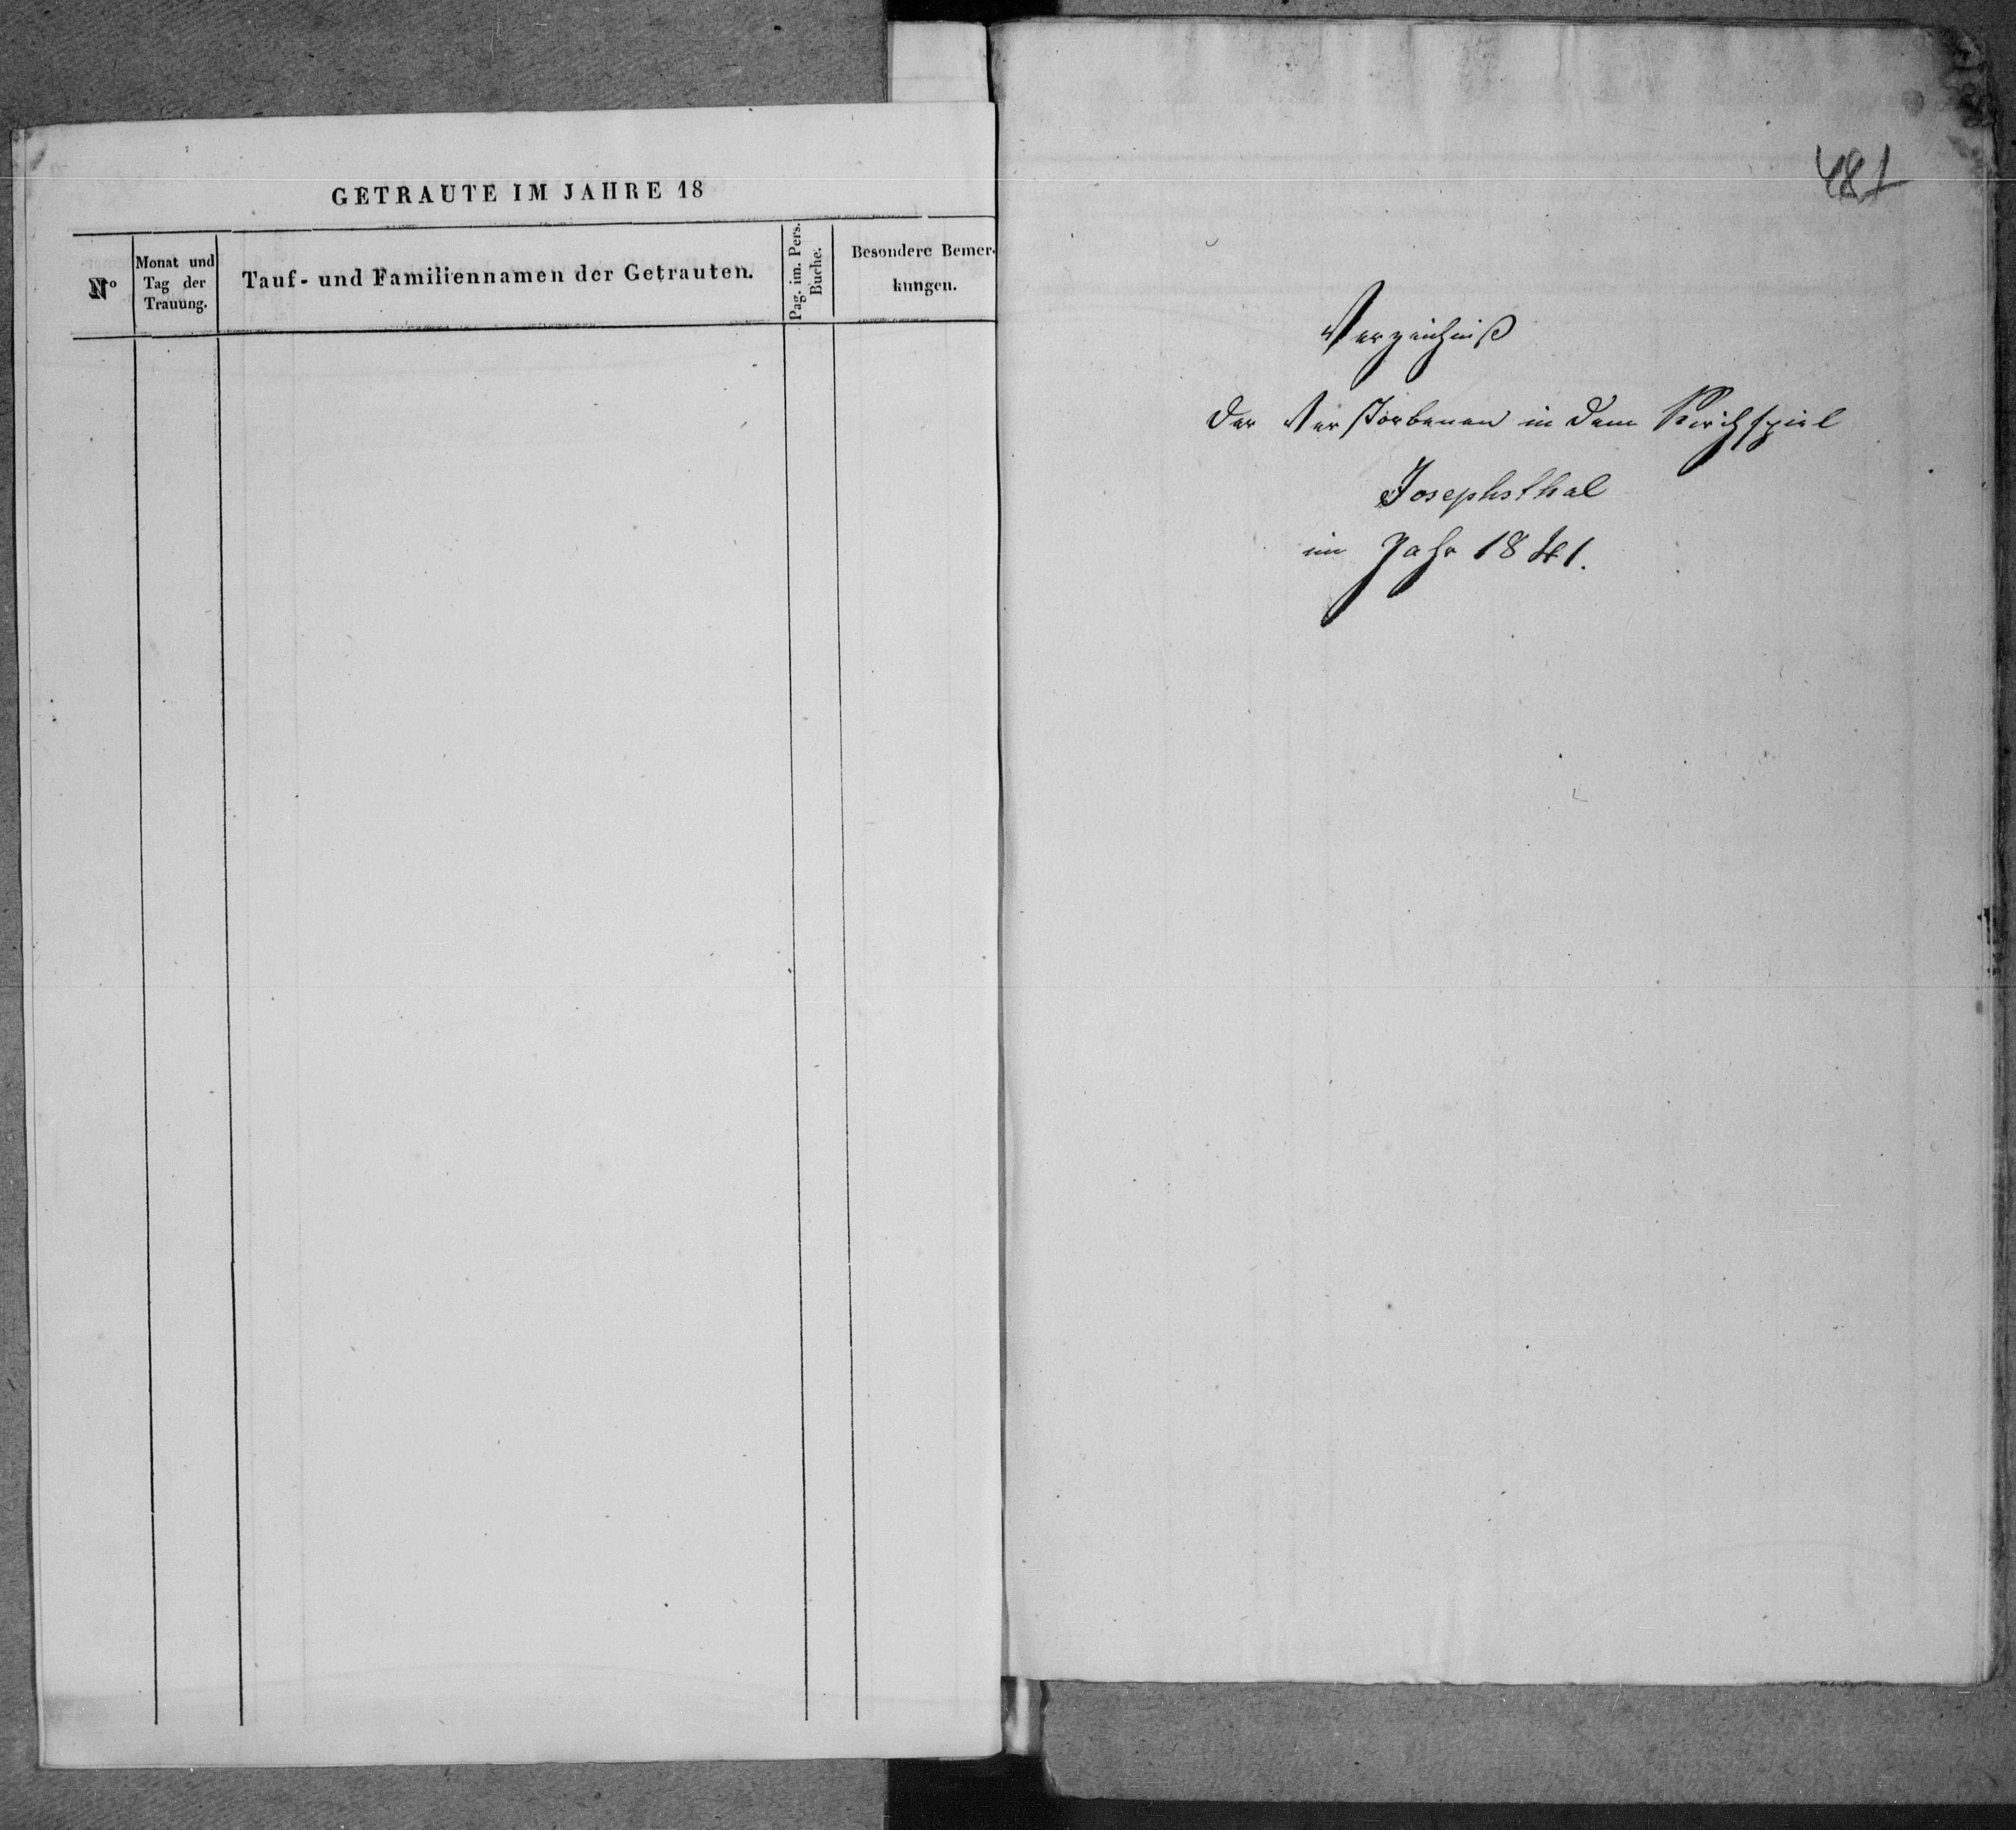 GETRAUTE IM JAHRE 18
No
Monat und
Tag der
Trauung.
Tauf- und Familiennamen der Getrauten.
Pag. im. Pers.
Buche.
Besondere Bemer-
kungen.
481
Verzeichniß
der Verstorbenen in dem Kirchspiel
Josephsthal
im Jahr 1841.